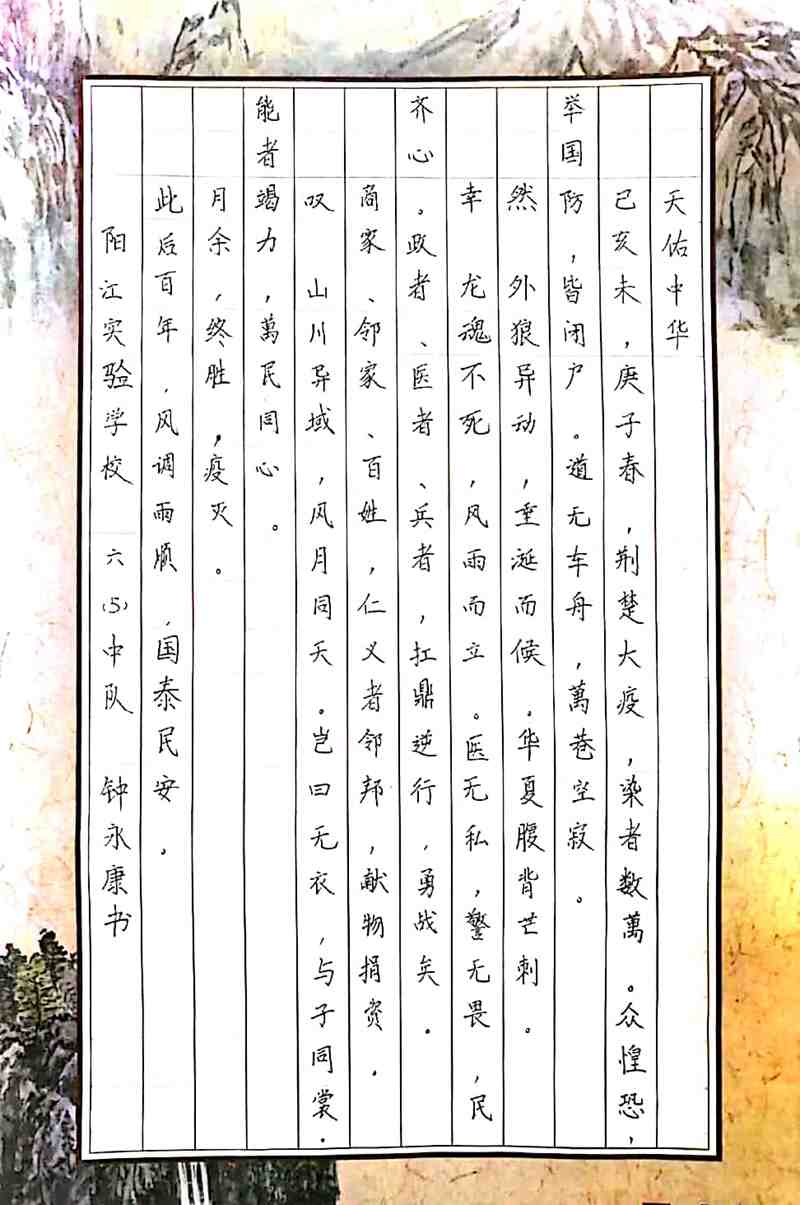 天佑中华
己亥末，庚子春，荆楚大疫，染者数萬。众惶恐，
举国防，皆闭户。道无车舟，萬巷空寂。
然 外狼异动，垂涎而候。华夏腹背芒刺。
幸 龙魂不死，风雨而立。医无私，警无畏，民
齐心。政者、医者、兵者，扛鼎逆行，勇战矣。
商家、邻家、百姓，仁义者邻邦，献物捐资．
叹 山川异域，风月同天。岂曰无衣，与子同裳．
能者竭力，萬民同心。
月余，终胜，疫灭。
此后百年，风调雨顺，国泰民安．
阳江实验学校 六(5)中队 钟永康书